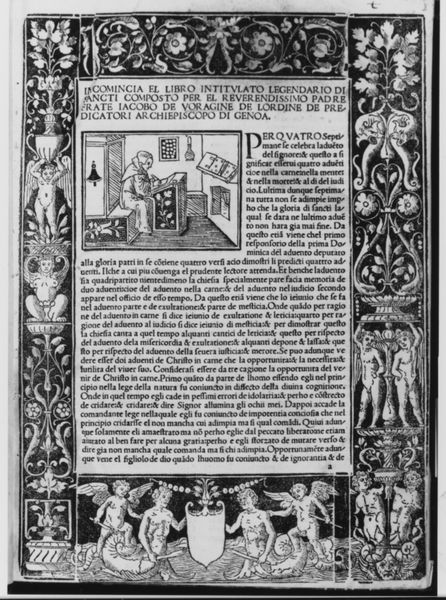 INCOMINCIA EL LIBRO INTITVLATO LEGENDARIO DI
SANCTI COMPOSTO PER EL REVERENDISSIMO PADRE
FRATE IACOBO DE VORAGINE DE LORDINE DE PRE
DICATORI ARCHIEPISCOPO DI GENOA.
PER QVATRO Septi
mane se celebra laduēto
del signore& questo a si
gnificar esserui quatro aduēti
cioe nella carne nella mente&
& nella morte& al di del iudi
cio. Lultima dunque septima
na tutta non se adimpie imp̄
ho che la gloria di sancti la
qual se dara ne lultimo aduē
to non hara gia mai fine. Da
questo etiā viene chel primo
responsorio della prima Do
minica del aduento deputato
alla gloria patri in se cōtiene quattro versi acio dimostri li predicti quattro ad
uenti. Il che a cui piu cōuenga el prudente lectore attenda. Et benche laduento
sia quadripartito nientedimeno la chiesia specialmente pare facia memoria de
duo aduenti cioe del aduento nella carne& del aduento nel iudicio secondo
appare nel officio de esso tempo. Da questo etiā viene che lo ieiunio che se fa
nel aduento parte e de exultatione& parte de mesticia. Onde quādo per ragio
ne del aduento in carne si dice ieiunio de exultatione& leticia: quarto per ra
gione del aduento al iudicio si dice ieiunio di mesticia: & per dimostrar questo
la chiesia canta a quel tempo alquanti cantici de leticia: & questo per rispecto
del aduento dela misericordia & exultatione& alquanti depone & lassa: & que
sto per rispecto del aduento della seuera iusticia: & merore. Se puo adunque ve
dere esser doi aduenti de Christo in carne che la opportunita: & la necessita: &
lutilita del viuer suo. Considerasi essere da tre cagione la opportunita del ve
nir de Christo in carne. Primo quāto da parte de lhomo essendo egli nel prin
cipio nella lege della natura fu coniuncto in diffecto della diuina cognitione.
Onde in quel tempo egli cade in pessimi errori de idolatria: & perho e cōstrecto
de cridare& cridare& dire Signor allumina gli ochii mei. Dappoi accade la
comandante lege nella quale egli fu coniuncto de impotentia conciosia che nel
principio cridasse el non mancha cui adimpia ma si qual comādi. Quiui adun
que solamente eli amaestrato ma nō perho eglie dal peccato liberato ne etiam
aiutato al ben fare per alcuna gratia: perho e egli sforzato de mutare verso &
dire gia non mancha quale comanda ma si chi adimpia. Opportunamēte adun
que vene el figliolo de dio quādo lhuomo fu coniuncto & de ignorantia & de
a